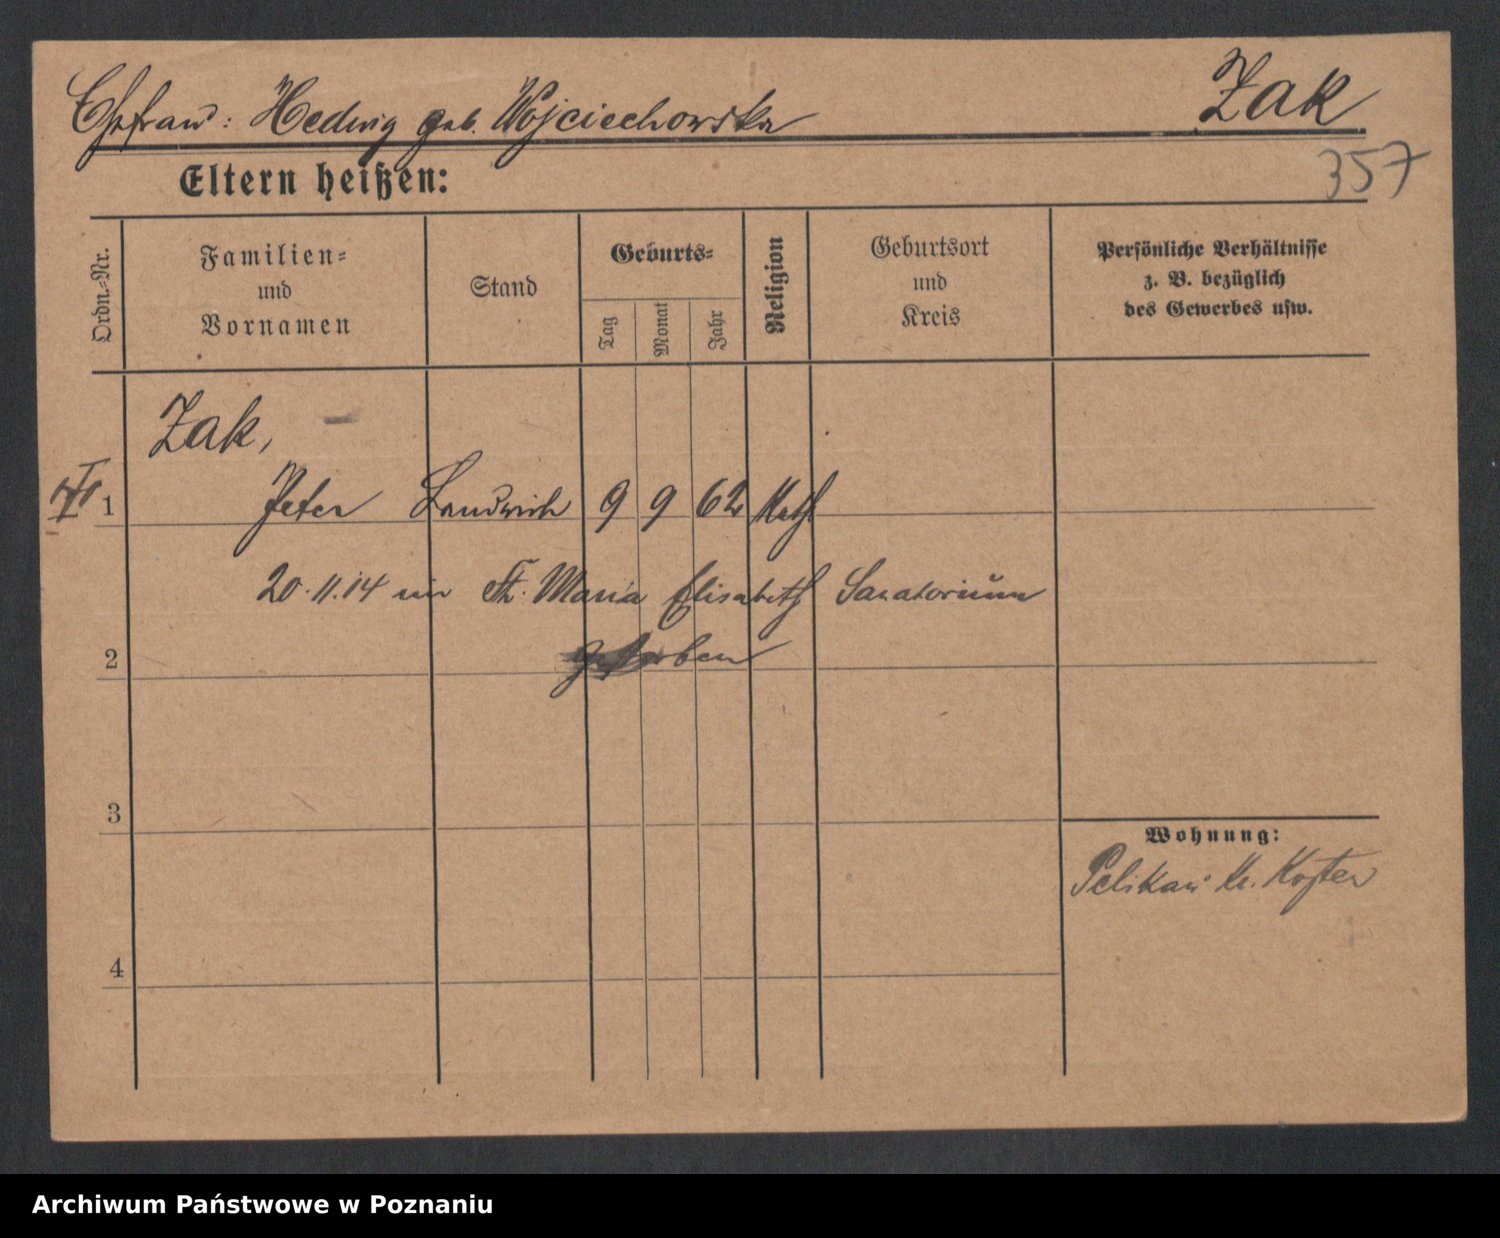 Ehefrau: Hedwig geb. Wojciechowska Zak
357
Eltern heißen:
Ordn.-Nr.
Familien-
und
Vornamen
Stand
Geburts-
Tag
Monat
Jahr
Religion
Geburtsort
und
Kreis
Persönliche Verhältnisse
z. B. bezüglich
des Gewerbes usw.
Zak,
1 Peter Landwirth 9 9 62 Kath
20.11.14 im St. Maria Elisabeth Sanatorium
2 gestorben
3
Wohnung:
Pelikan Kr. Kosten
4
Archiwum Państwowe w Poznaniu